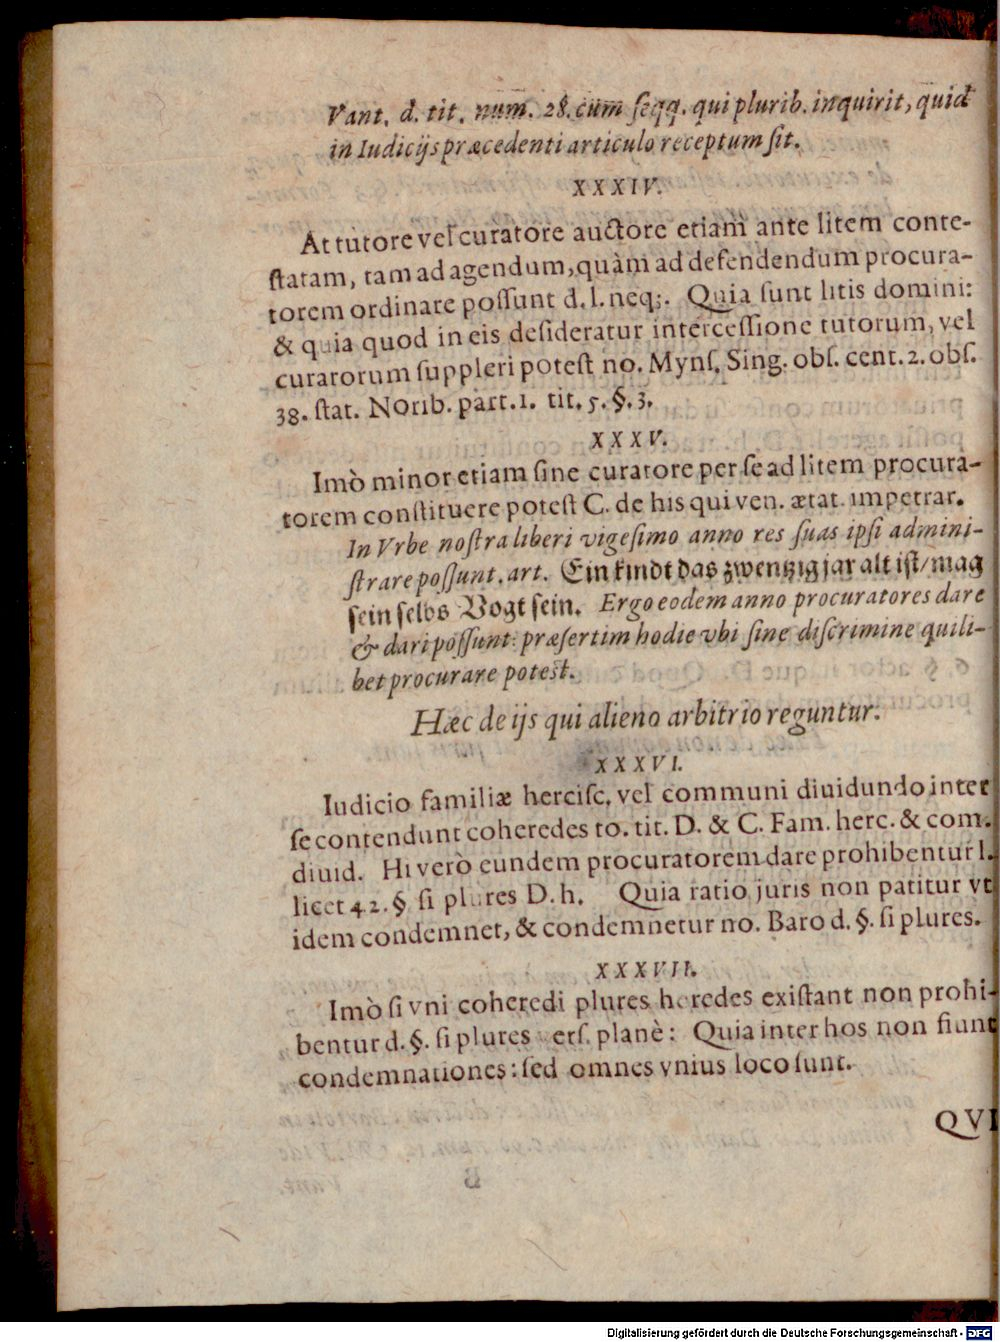 Vant. d. tit. num. 28. cum ſeqq. qui plurib. inquirit, quid
in Iudicijs præcedenti articulo receptum ſit.
XXXIV.
At tutore vel curatore auctore etiam ante litem conte-
ſtatam, tam ad agendum, quàm ad defendendum procura-
torem ordinare poſſunt d. l. neq;. Quia ſunt litis domini:
& quia quod in eis deſideratur interceſſione tutorum, vel
curatorum ſuppleri poteſt no. Mynſ. Sing. obſ. cent. 2. obſ.
38. ſtat. Norib. part. 1. tit. 5. §. 3.
XXXV.
Imò minor etiam ſine curatore per ſe ad litem procura-
torem conſtituere poteſt C. de his qui ven. ætat. impetrar.
In Vrbe noſtra liberi vigeſimo anno res ſuas ipſi admini-
ſtrare poſſunt. art. Ein kindt das zwentzig jar alt iſt/ mag
ſein ſelbs Vogt ſein. Ergo eodem anno procuratores dare
& dari poſſunt: præſertim hodie vbi ſine diſcrimine quili-
bet procurare poteſt.
Hæc de ijs qui alieno arbitrio reguntur.
XXXVI.
Iudicio familiæ herciſc. vel communi diuidundo inter
ſe contendunt coheredes to. tit. D. & C. Fam. herc. & com.
diuid. Hi verò eundem procuratorem dare prohibentur l.
licet 42. § ſi plures D. h. Quia ratio juris non patitur vt
idem condemnet, & condemnetur no. Baro d. §. ſi plures.
XXXVII.
Imò ſi vni coheredi plures heredes exiſtant non prohi-
bentur d. §. ſi plures verſ. planè: Quia inter hos non fiunt
condemnationes: ſed omnes vnius loco ſunt.
QVI
Digitalisierung gefördert durch die Deutsche Forschungsgemeinschaft - DFG